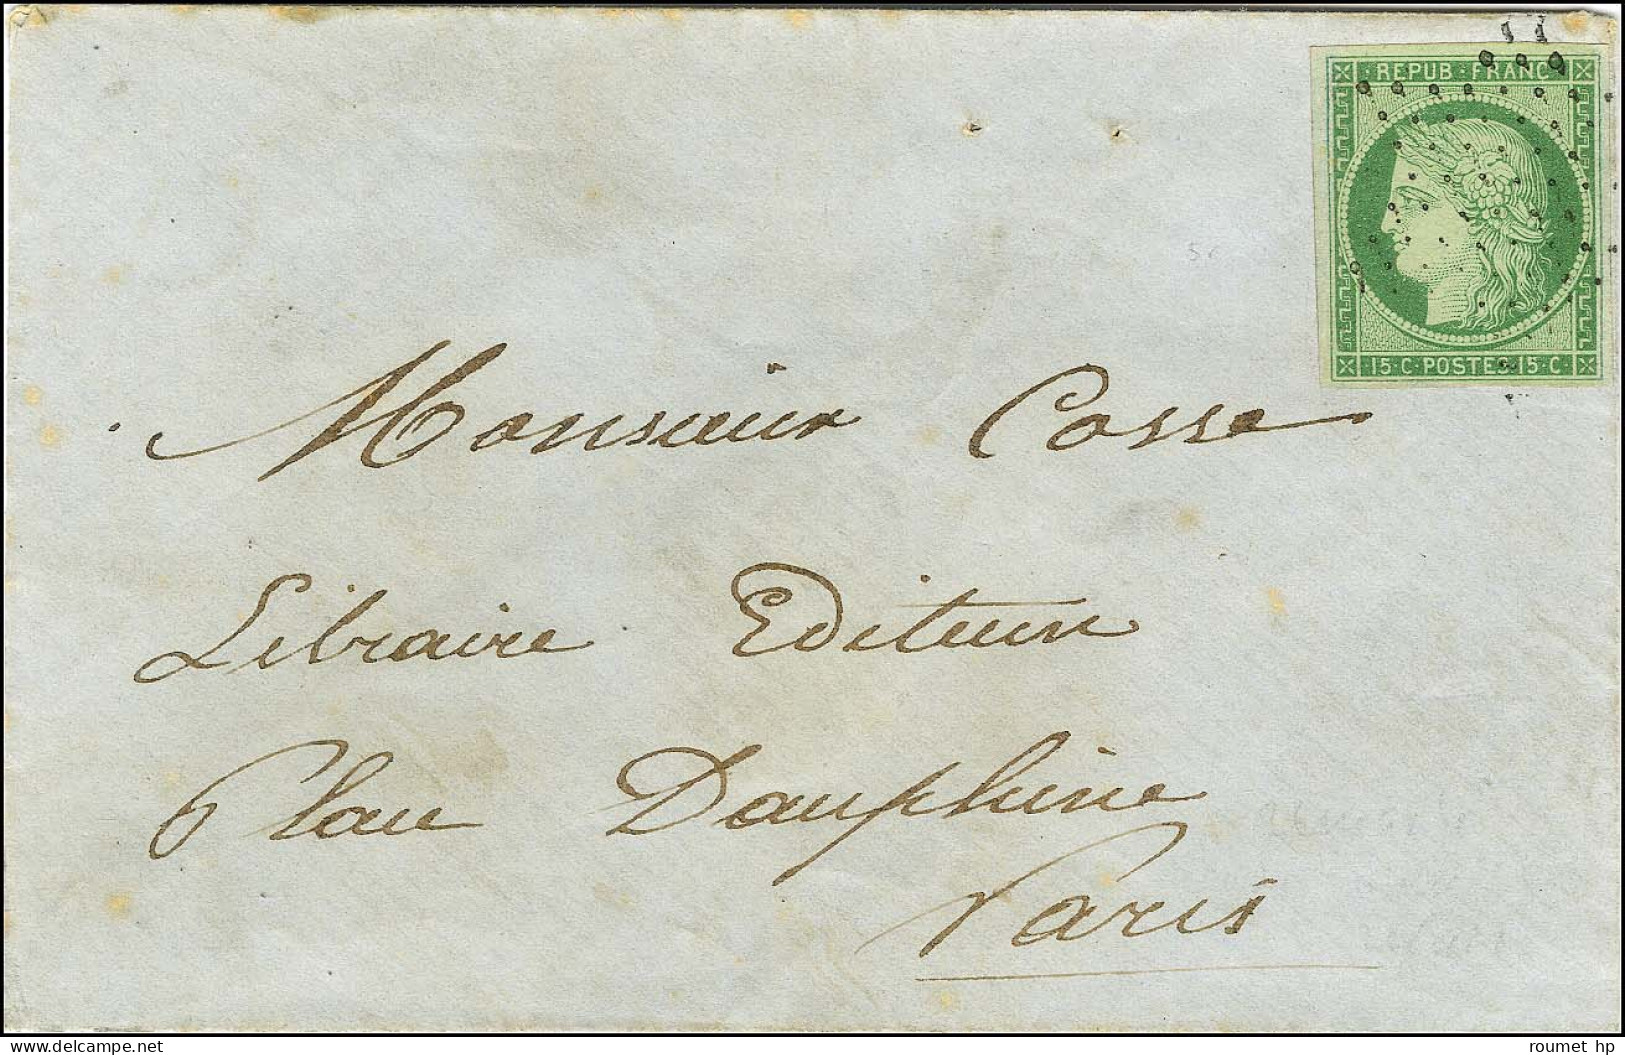 REPUB · FRANC
15 · C · POSTES · 15 · C ·
Monsieur Cosse
Libraire Editeur
Place Dauphine
Paris
delcampe.net
roumet hp